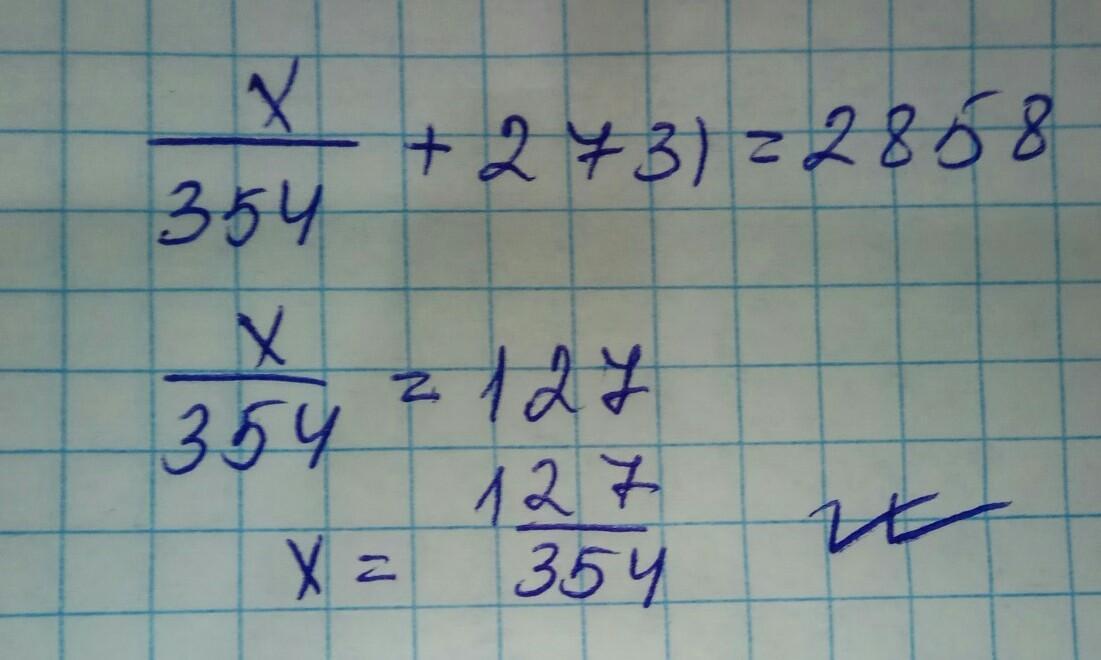 x/354 + 2731 = 2858
x/354 = 127
x = 127/354